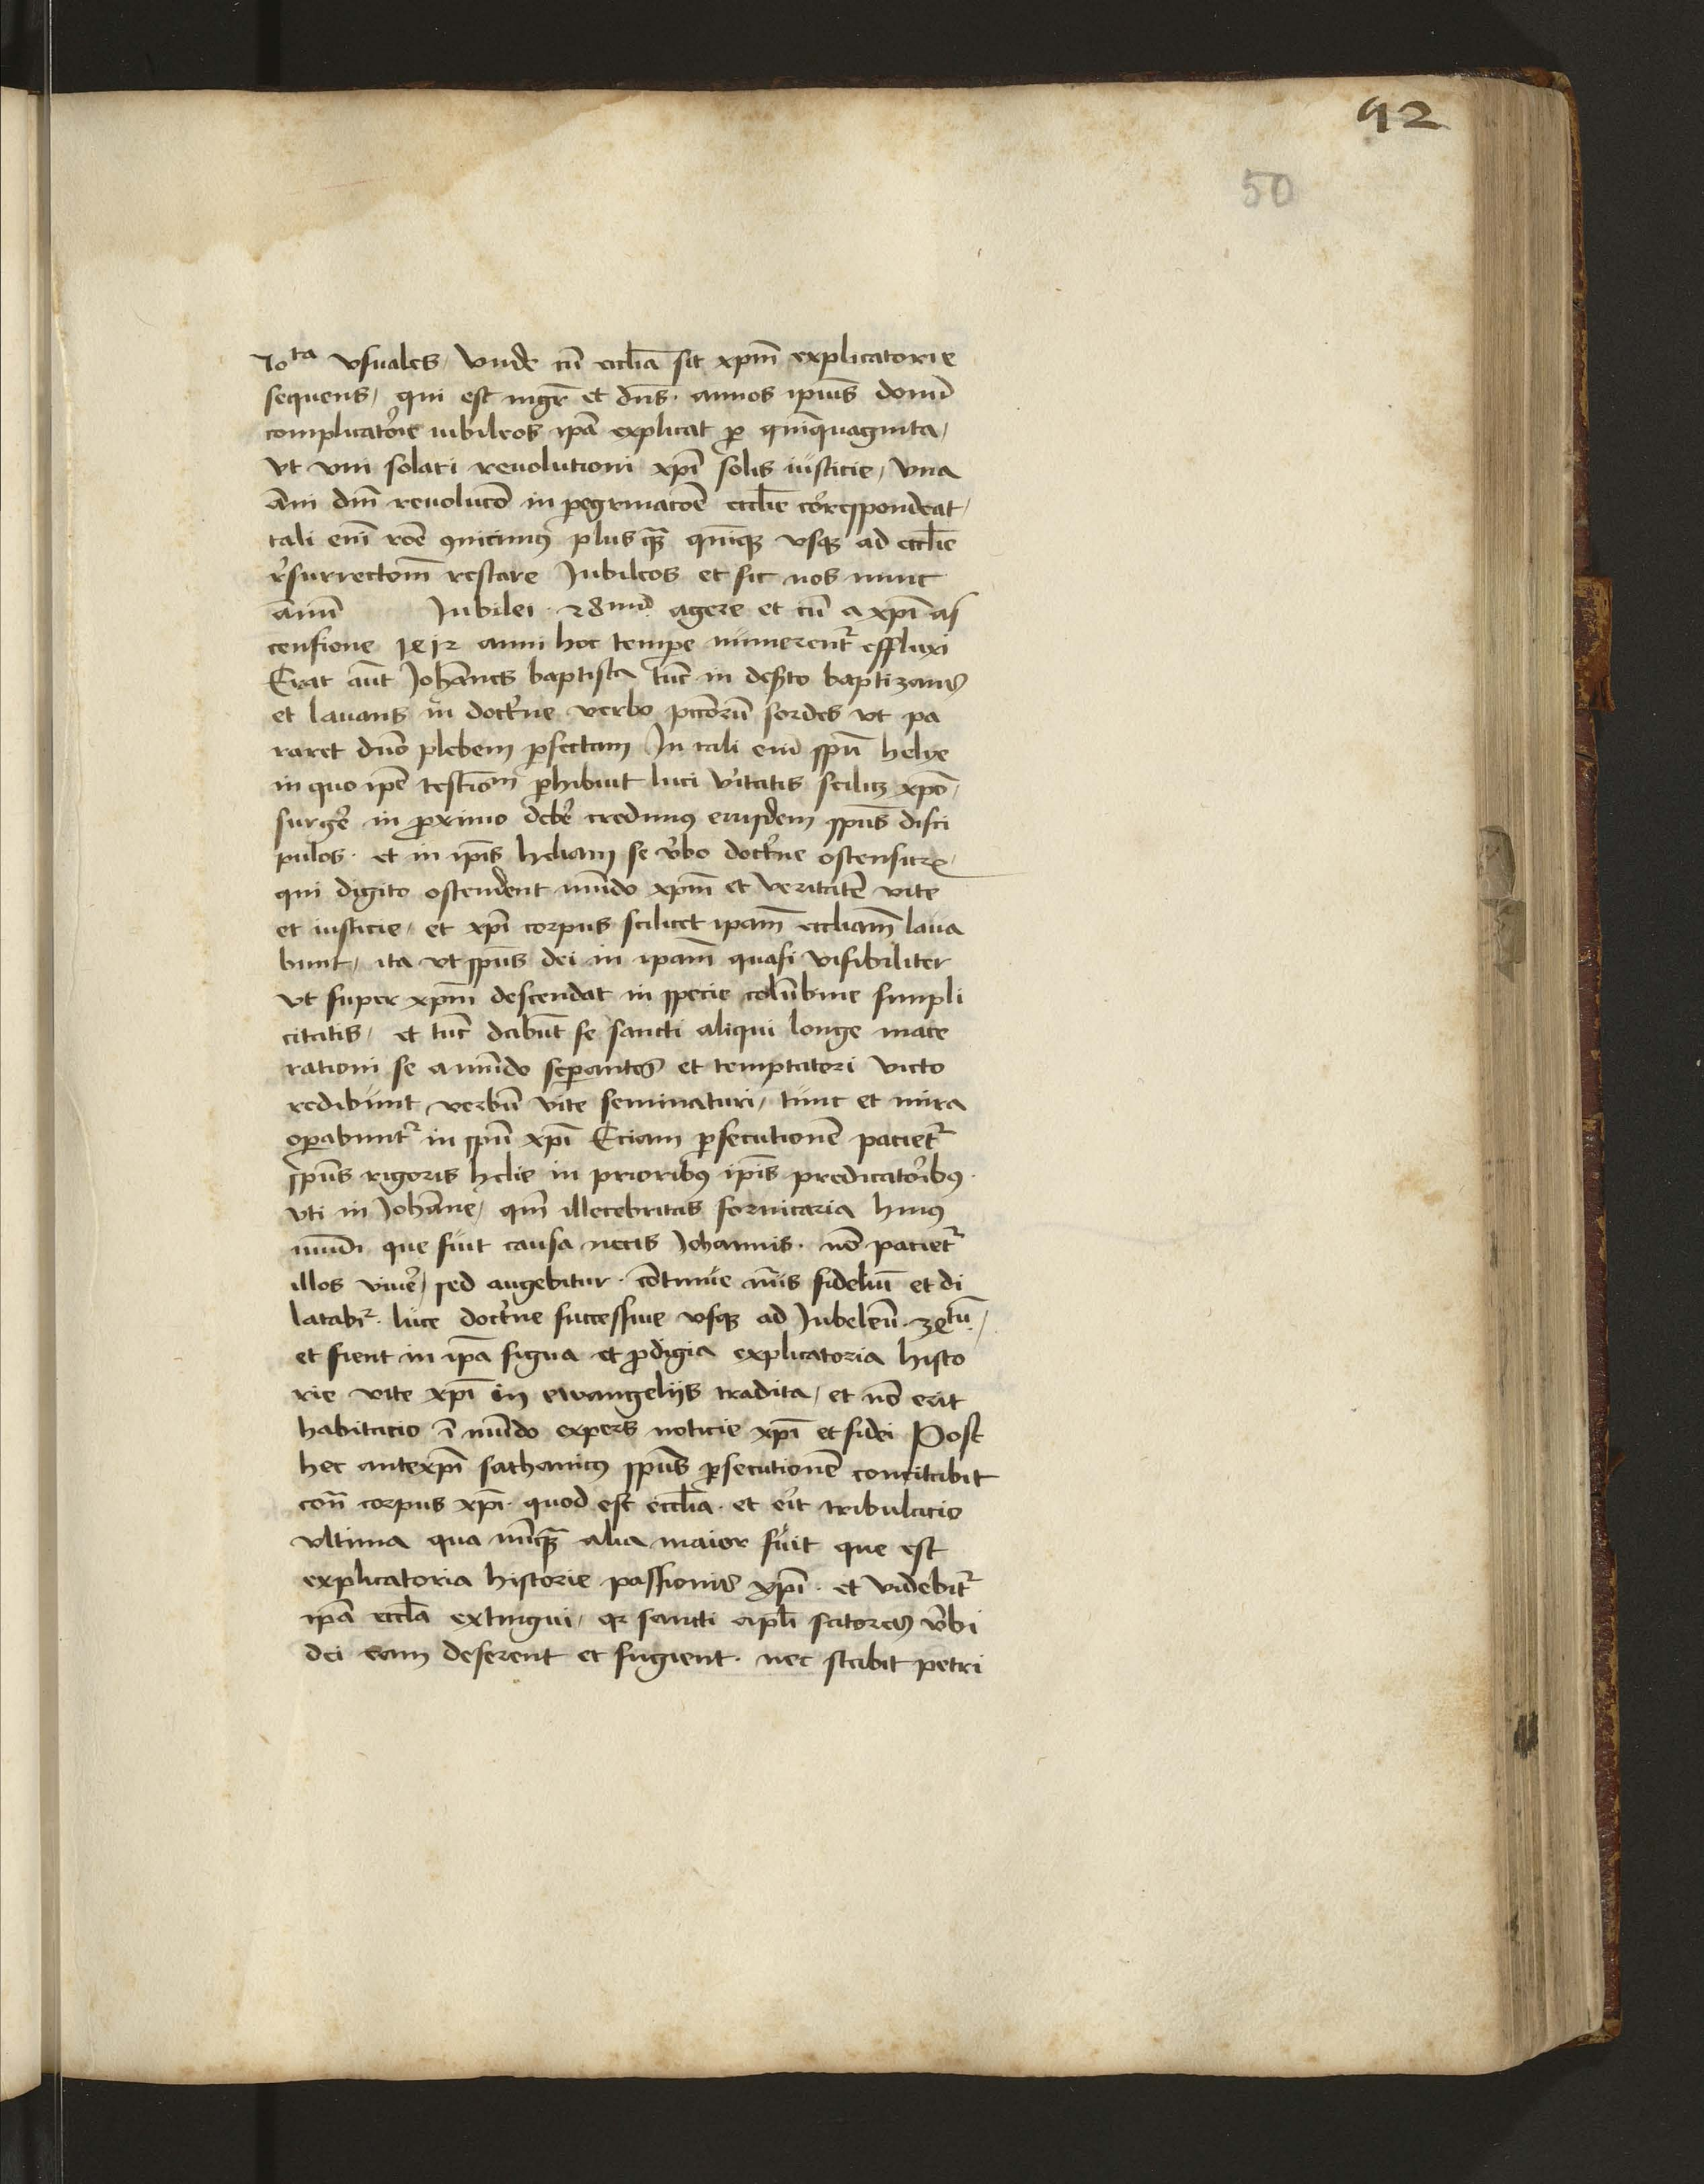 92
50
70ta vsuales, Vnde cū eccl̄ia sit xp̄m explicatorie
sequens, qui est mgr̄ et dn̄s. annos ipius domī
complicatorie iubileos ip̄a explicat p quīnquaginta,
vt vni solari reuolutioni xp̄i solis iusticie, vna
ānī dn̄i reuolucō in pegrinacōe eccl̄ie correspondeat,
tali enī rōe 9nicimꝯ plusꝗ̄ quīqꝫ vsqꝫ ad eccl̄ie
r̓surrectōm̄ restare Jubileos et sic nos nunc
ānū Jubilei . 28um̄ . agere et cū a xp̄i as
censione 1412 anni hoc tempe numerent᷑ effluxi
Erat aūt Joh̄annes baptista tūc in des̓to baptizans
et lauans in doct̓ne verbo pccōrū sordes vt pa
raret dn̄o plebem pfectam In tali enī spū helye
in quo ip̄e testīom̄ phibuit luci v̓itatis scilicꝫ xp̄o,
surge̓ in proximo debe̓ credimꝯ eiusdem sp̄us disci
pulos . et in ip̄is heliam se v̓bo doct̓ne ostensurꝝ,
qui digito ostendent mūdo xp̄m et veritatē vite
et iusticie, et xp̄i corpus scilicet ip̄am eccl̄iam laua
bunt, ita vt sp̄us dei in ip̄am quasi visibiliter
vt super xp̄m descendat in specie colūbine simpli
citatis, et tūc dabūt se sancti aliqui longe mace
rationi se a mūdo sepantes et temptatori victo
redibunt verbū vite seminaturi, tunc et mira
opabunt᷑ in spū xp̄i Eciam psecutionē paciet᷑
sp̄us rigoris helie in prioribꝯ ip̄is predicatoribꝯ .
vti in Joh̄anne, qm̄ illecebritas fornicaria huiꝯ
mūdi que fuit causa necis Johannis . nō paciet᷑
illos viue̓, sed augebitur . cōtinue nūs fideliū et di
latabr᷑ . luce doct̓ne successiue vsqꝫ ad Jubeleū . 34tū . ,
et fient in ip̄a signa et prodigia explicatoria histo
rie vite xp̄i in ewangelijs tradita, et nō erit
habitacio ī mūdo expers noticie xp̄i et fidei Post
hec antexp̄i sathanicꝯ sp̄us psecutionē concitabit
con̄ corpus xp̄i . quod est eccl̄ia . et e̓it tribulacio
vltima qua nūꝗ̄ alia maior fuit que est
explicatoria historie passionis xp̄i . et videbit᷑
ip̄a eccl̄a extingui, qꝛ sancti apl̄i satores v̓bi
dei eam deserent et fugient . nec stabit petri